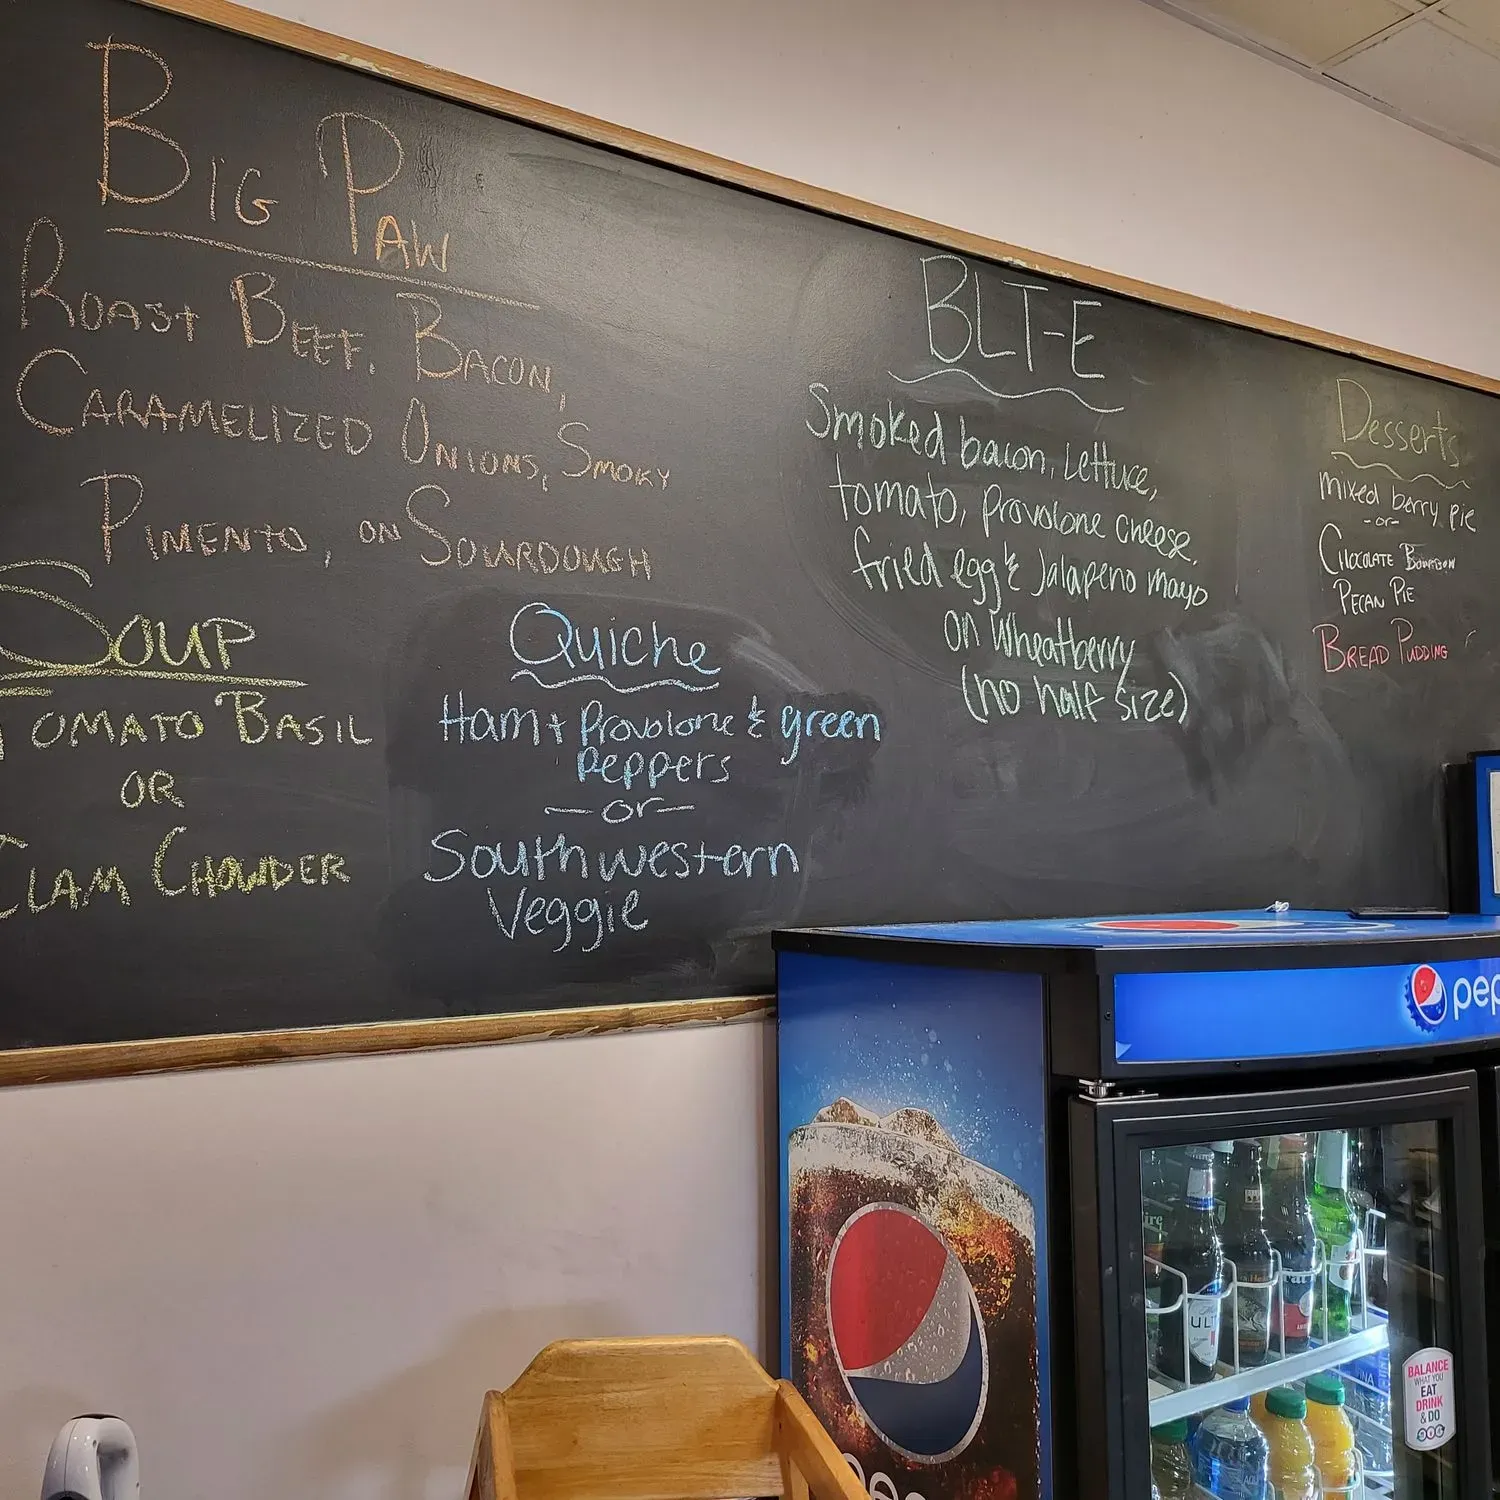 BIG PAW
ROAST BEEF, BACON,
CARAMELIZED ONIONS, SMOKY
PIMENTO, ON SOURDOUGH
SOUP
TOMATO BASIL
OR
CLAM CHOWDER
Quiche
Ham + Provolone & green
peppers
—or—
Southwestern
Veggie
BLT-E
Smoked bacon, Lettuce,
tomato, provolone cheese,
fried egg & Jalapeno mayo
on Wheatberry
(no half size)
Desserts
mixed berry pie
-or-
CHOCOLATE BOURBON
PECAN PIE
BREAD PUDDING
pep
ULT
BALANCE
WHAT YOU
EAT
DRINK
& DO